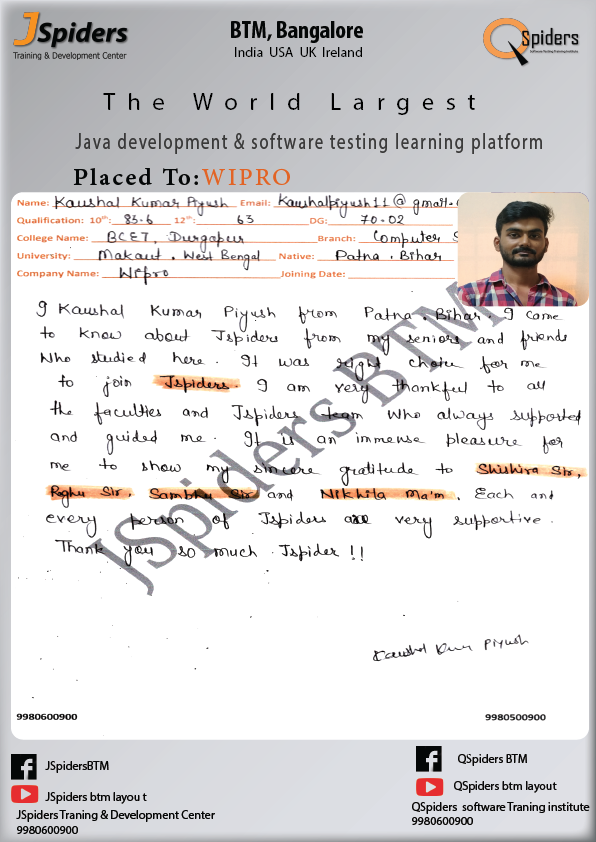 JSpiders
Training & Development Center
BTM, Bangalore
India USA UK Ireland
QSpiders
Software Testing Training Institute
The World Largest
Java development & software testing learning platform
Placed To: WIPRO
Name: Kaushal Kumar Piyush Email: Kaushalpiyush11@gmail.
Qualification: 10th: 83.6 12th: 63 DG: 70.02
College Name: BCET, Durgapur Branch: Computer S
University: Makaut, West Bengal Native: Patna, Bihar
Company Name: Wipro Joining Date:
I Kaushal Kumar Piyush from Patna, Bihar. I came
to know about Jspiders from my seniors and friends
who studied here. It was right choice for me
to join Jspiders. I am very thankful to all
the faculties and Jspiders team who always supported
and guided me. It is an immense pleasure for
me to show my sincere gratitude to Shishira Sir,
Raghu Sir, Sambhu Sir and Nikhita Ma'm. Each and
every person of Jspiders are very supportive.
Thank you so much Jspider !!
JSpiders BTM
Kaushal Kumar Piyush
9980600900 9980500900
JSpidersBTM
JSpiders btm layou t
JSpiders Traning & Development Center
9980600900
QSpiders BTM
QSpiders btm layout
QSpiders software Traning institute
9980600900